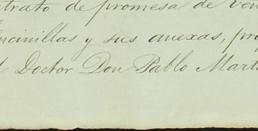 trato de promesa de ven
incinillas y sus anexas, pro
l Doctor Don Pablo Marti